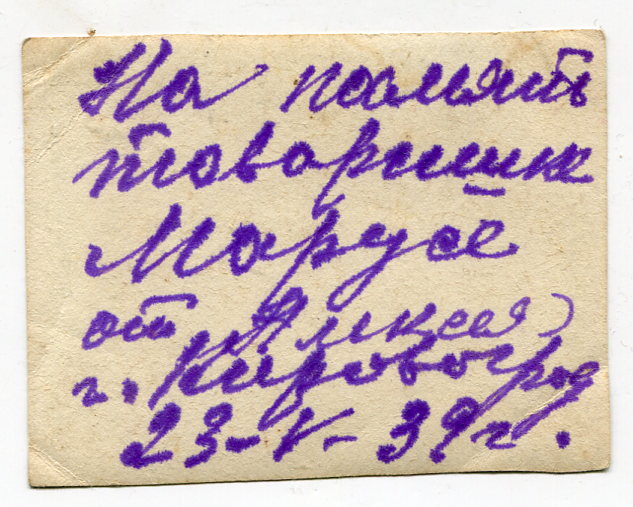 На помять
товаришке
Марусе
от Аликсея
г. Кировоград
23-V-39 г.